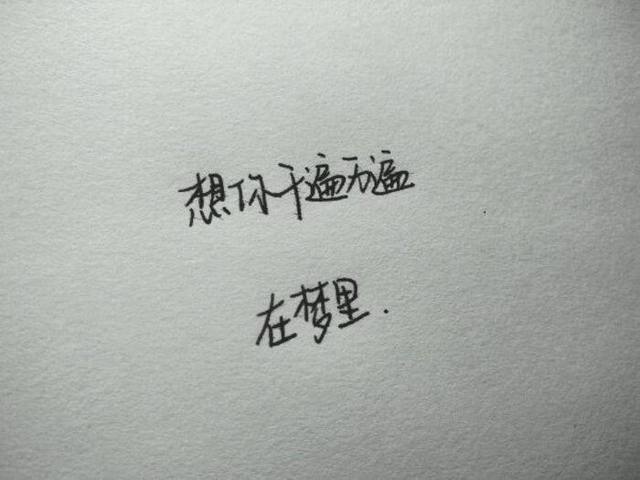 想你千遍万遍
在梦里.